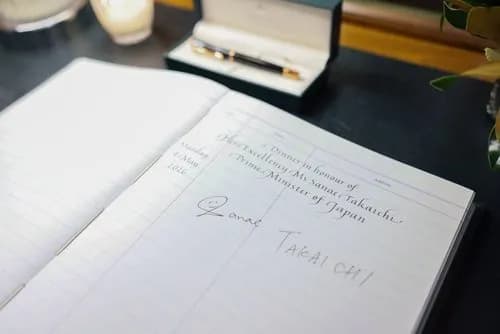 Monday
4 May
2026
Dinner in honour of
Her Excellency Ms Sanae Takaichi,
Prime Minister of Japan
Sanae TAKAICHI